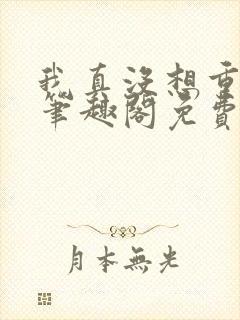 我真没想重
笔趣阁免费
月本無光